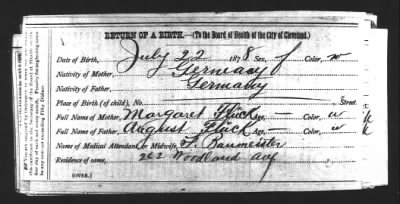 RETURN OF A BIRTH.—(To the Board of Health of the City of Cleveland.)
Date of Birth, July 22 1878 Sex, f Color, w
Nativity of Mother, Germany
Nativity of Father, Germany
Place of Birth (of child), No. Street
Full Name of Mother, Margaret Flück Age, — Color, w
Full Name of Father, August Flück Age, — Color, w
Name of Medical Attendant, or Midwife, F. Banmeister
Residence of same, 262 Woodland Ave
(OVER.)